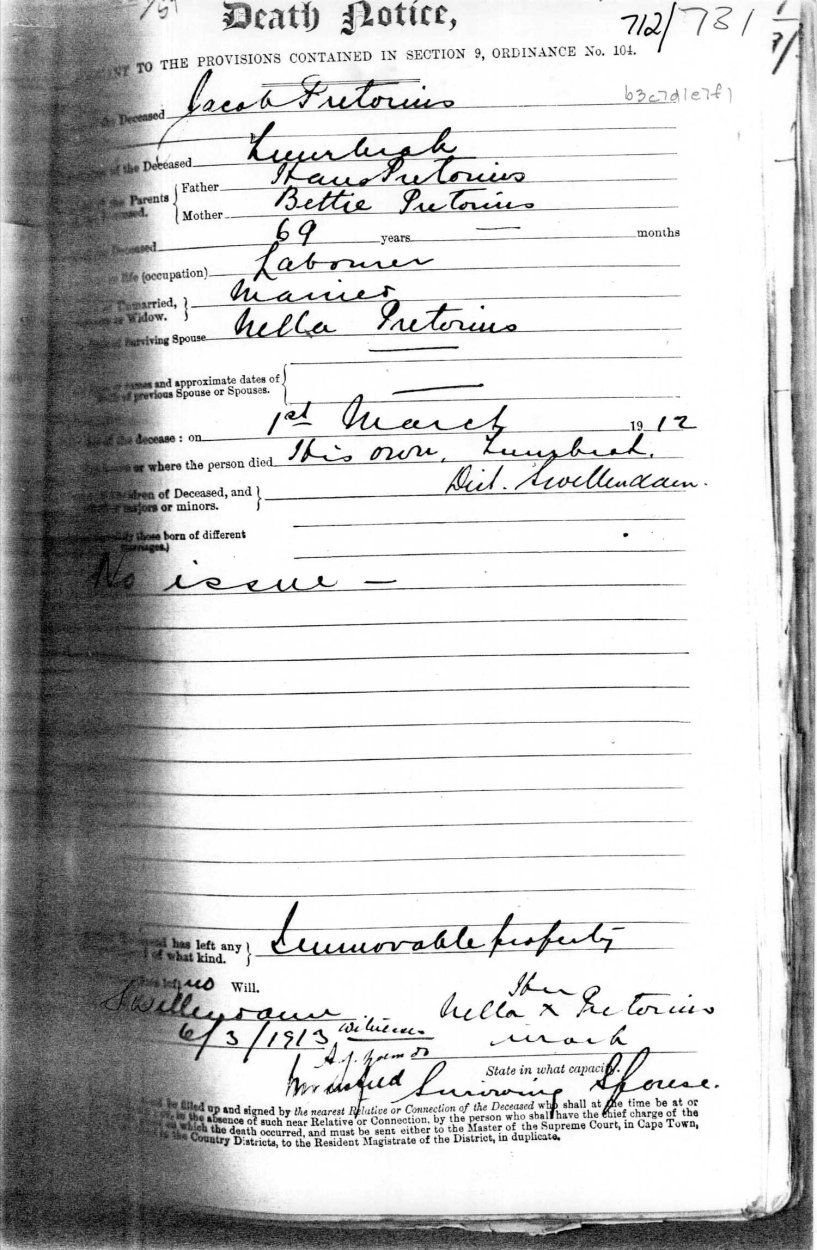 Death Notice,
712/731
TO THE PROVISIONS CONTAINED IN SECTION 9, ORDINANCE No. 104.
b3c7d1e7f1
the Deceased Jacob Pretorius
of the Deceased Zuurbrak
the Parents Father Hans Pretorius
Mother Bettie Pretorius
Deceased 69 years — months
life (occupation) Labourer
Unmarried, Married
or Widow.
Surviving Spouse Nella Pretorius
names and approximate dates of
of previous Spouse or Spouses.
of the decease: on 1st March 1912
or where the person died His own, Zuurbrak.
Children of Deceased, and Dist. Swellendam.
majors or minors.
those born of different
marriages.)
No issue —
has left any Immovable property
of what kind.
has left no Will. Her
Swellendam Nella x Pretorius
6/3/1913 Witnesses mark
State in what capacity.
Surviving Spouse.
be filled up and signed by the nearest Relative or Connection of the Deceased who shall at the time be at or
in the absence of such near Relative or Connection, by the person who shall have the chief charge of the
which the death occurred, and must be sent either to the Master of the Supreme Court, in Cape Town,
the Country Districts, to the Resident Magistrate of the District, in duplicate.